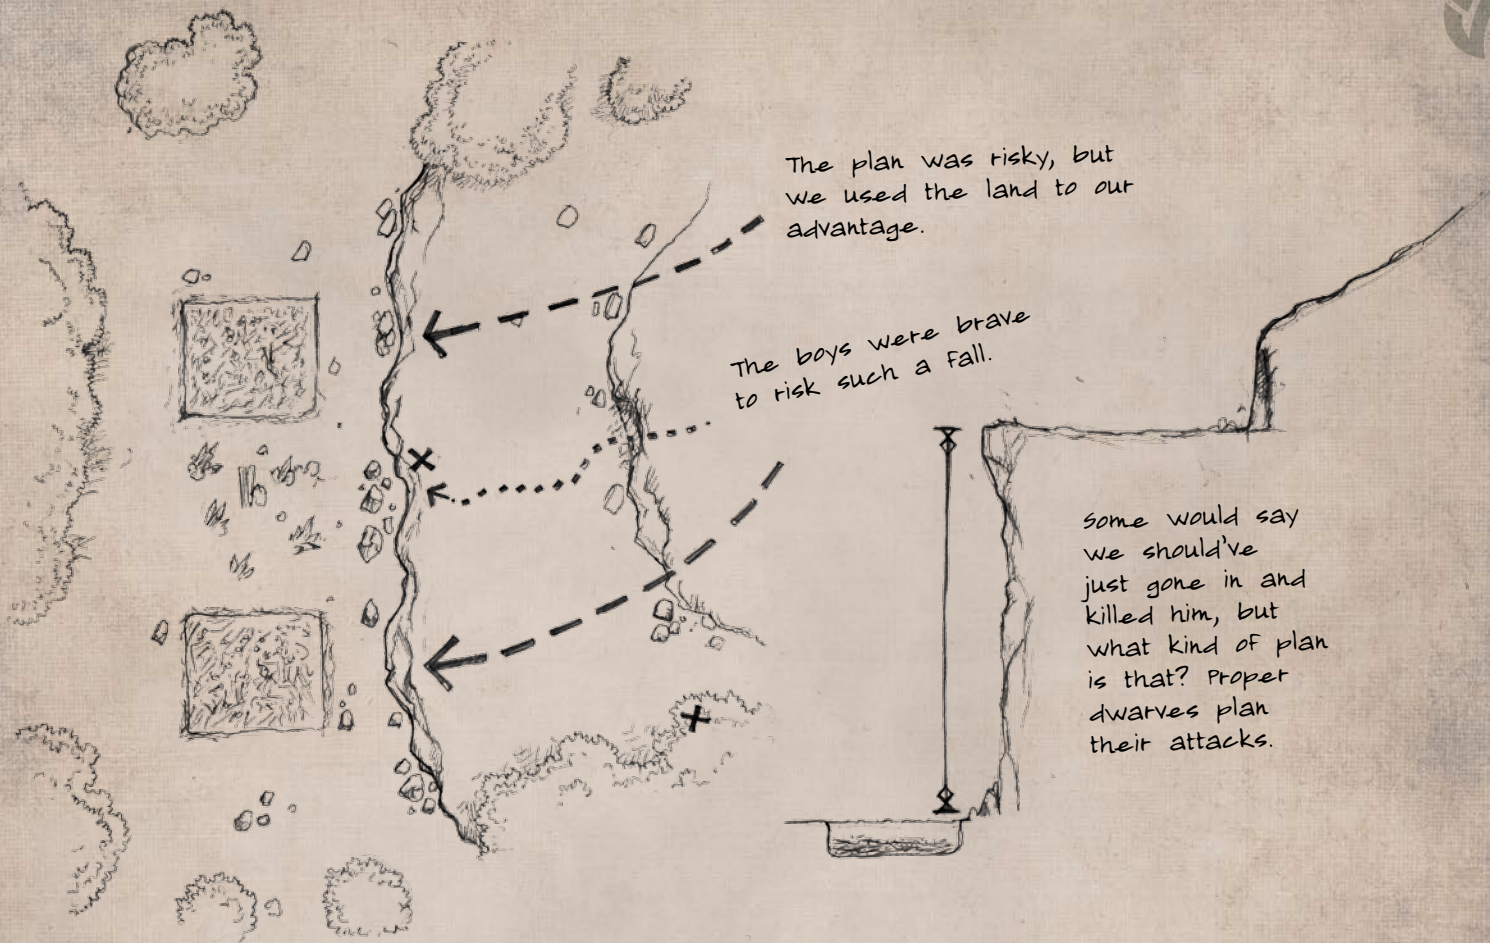 The plan was risky, but
we used the land to our
advantage.
The boys were brave
to risk such a fall.
Some would say
we should've
just gone in and
killed him, but
what kind of plan
is that? Proper
dwarves plan
their attacks.